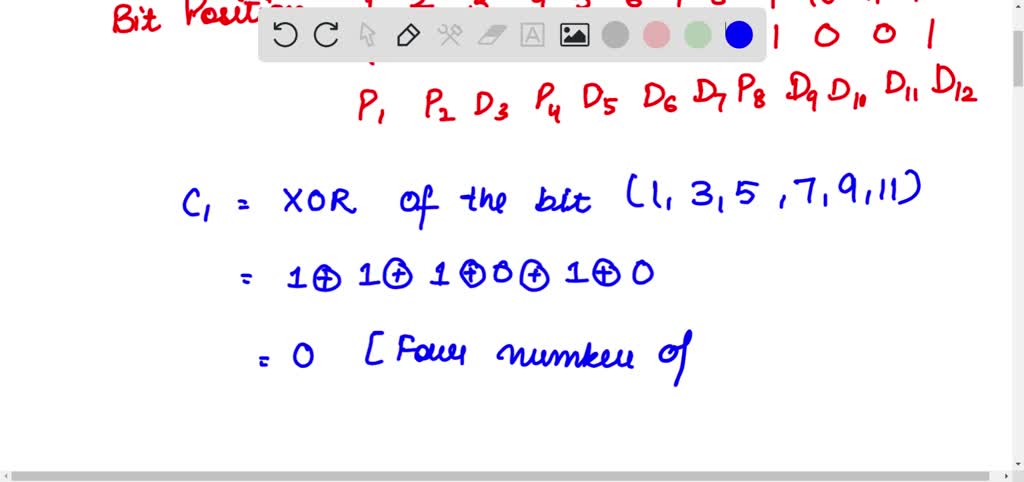 Bit Position
1 0 0 1
P₁ P₂ D₃ P₄ D₅ D₆ D₇ P₈ D₉ D₁₀ D₁₁ D₁₂
C₁ = XOR of the bit (1, 3, 5, 7, 9, 11)
= 1 ⊕ 1 ⊕ 1 ⊕ 0 ⊕ 1 ⊕ 0
= 0 [Four number of